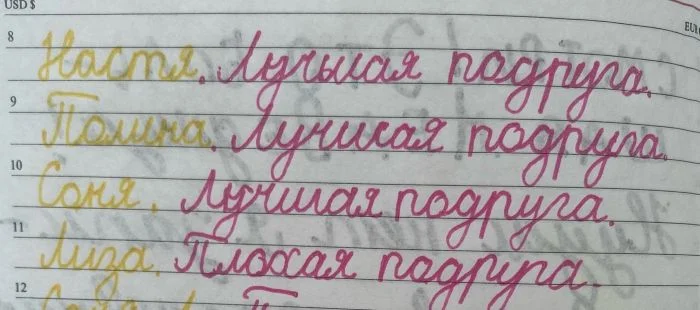 USD $
8 Настя. Лучшая подруга.
9 Полина. Лучшая подруга.
10 Соня. Лучшая подруга.
11 Лиза. Плохая подруга.
12